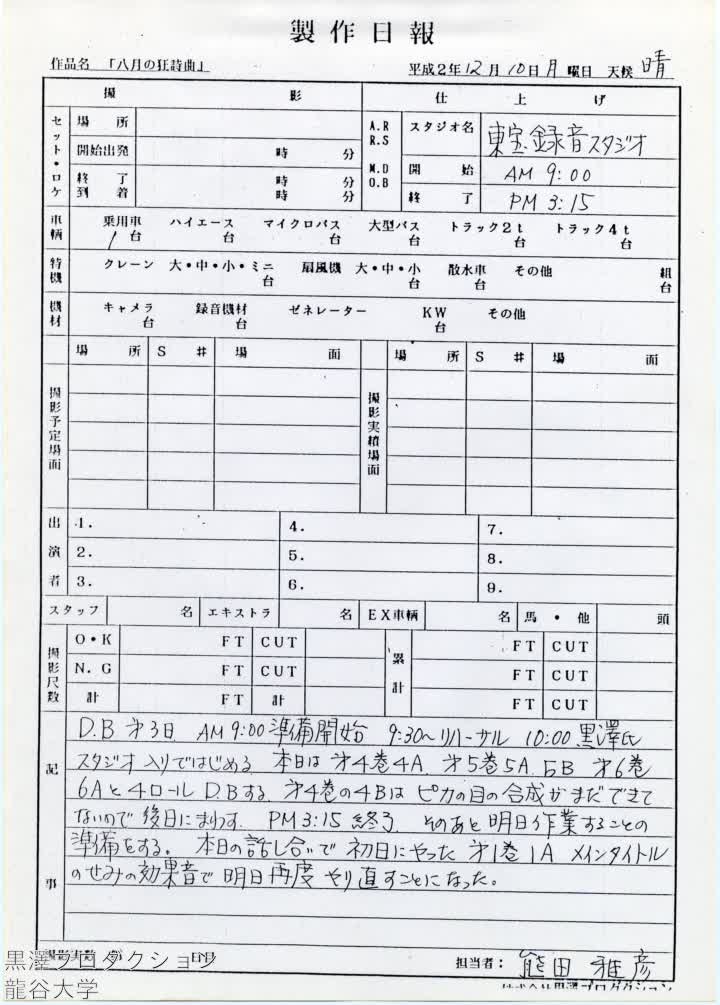 製作日報
作品名 「八月の狂詩曲」 平成2年12月10日月曜日 天候 晴
撮影 仕上げ
セット・ロケ 場所 A.R R.S M.D O.B スタジオ名 東宝録音スタジオ
開始出発 時 分 開始 AM 9:00
終了到着 時 分 時 分 終了 PM 3:15
車輌 乗用車 1台 ハイエース 台 マイクロバス 台 大型バス 台 トラック2t 台 トラック4t 台
特機 クレーン 大・中・小・ミニ 台 扇風機 大・中・小 台 散水車 台 その他 組 台
機材 キャメラ 台 録音機材 台 ゼネレーター KW 台 その他
撮影予定場面 場所 S# 場面 撮影実績場面 場所 S# 場面
出演者 1. 4. 7.
2. 5. 8.
3. 6. 9.
スタッフ 名 エキストラ 名 EX車輌 名 馬・他 頭
撮影尺数 O・K FT CUT 累計 FT CUT
N.G FT CUT FT CUT
計 FT 計 FT CUT
記事
D.B 才3日 AM 9:00 準備開始 9:30〜リハーサル 10:00 黒澤氏
スタジオ入りではじめる。本日は 才4巻4A. 才5巻5A. 5B 才6巻
6Aと4ロール D.Bする。才4巻の4Bは ピカの目の合成がまだできて
ないので 後日にまわす. PM 3:15 終了. そのあと 明日作業することの
準備をする。本日の話し合いで 初日にやった 才1巻 1A メインタイトル
のせみの効果音で 明日再度 やり直すことになった。
担当者: 熊田 雅彦
株式会社黒澤プロダクション
黒澤プロダクション
龍谷大学